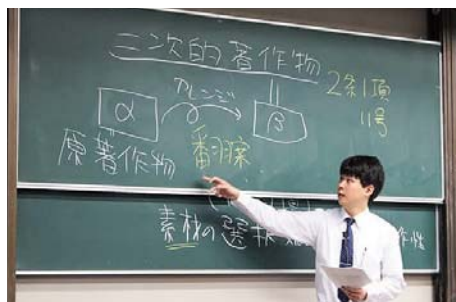 二次的著作物
2条1項
11号
アレンジ
α
β
原著作物
翻案
素材の選択
作性